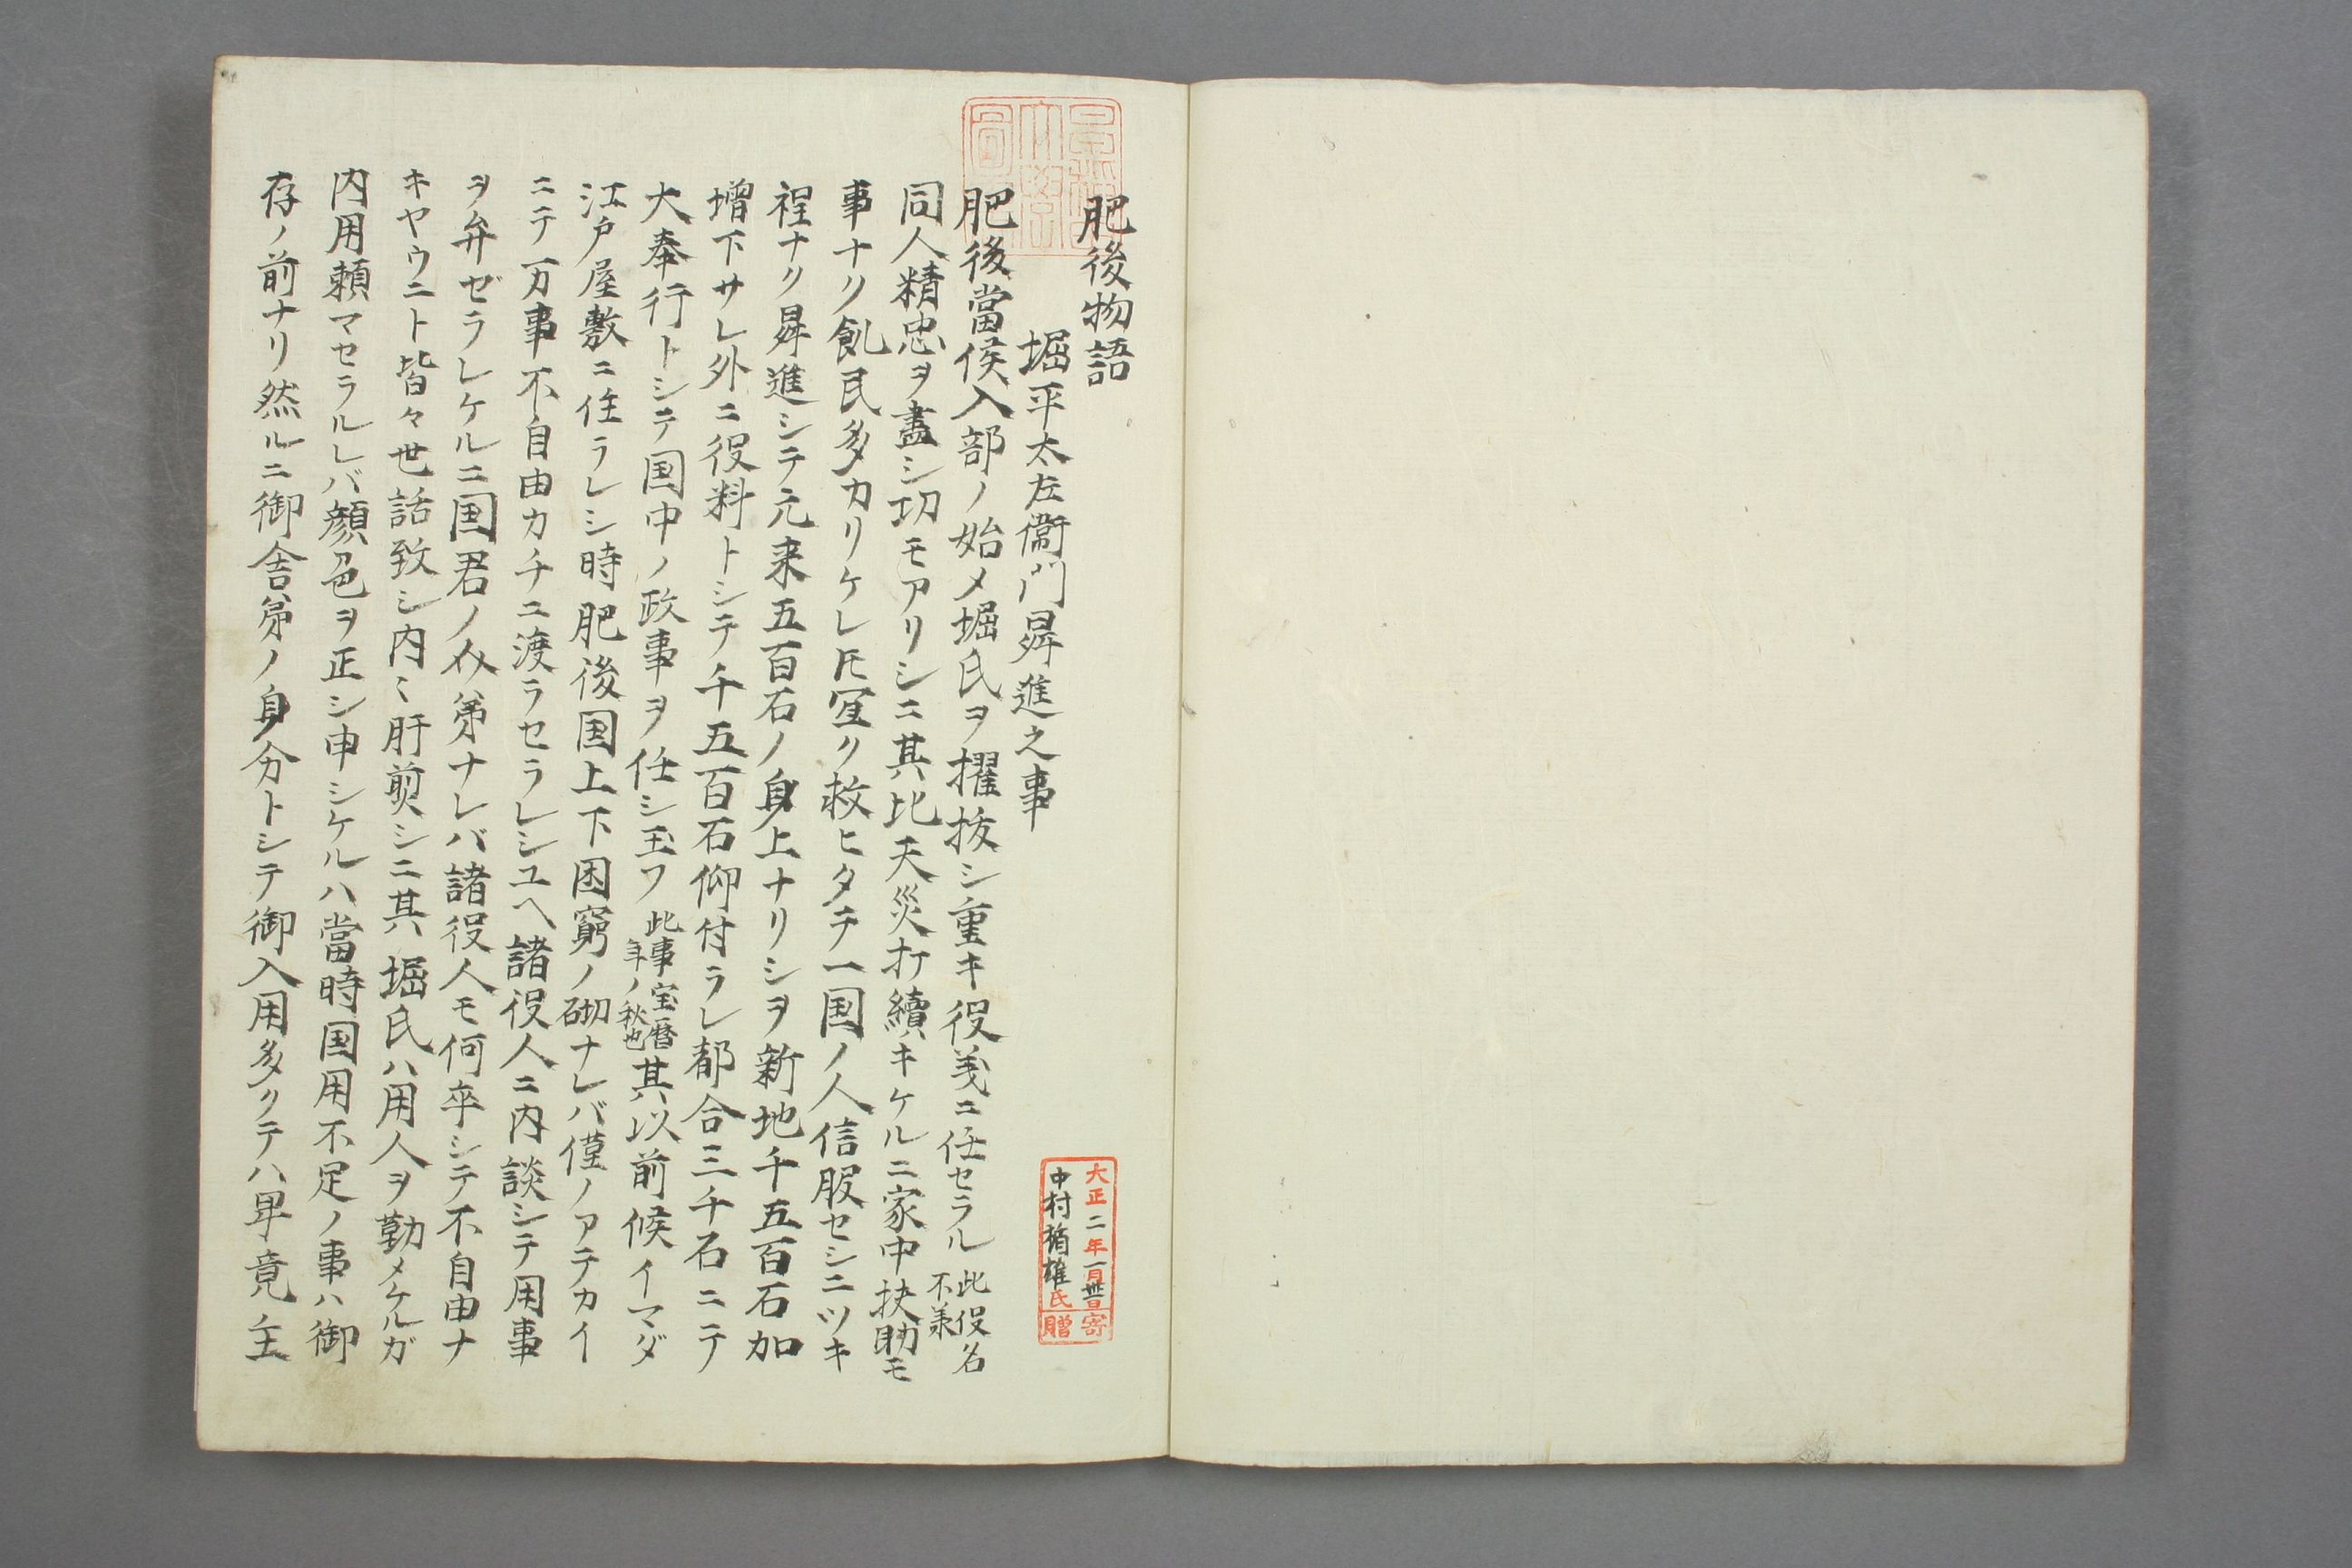 肥後物語
堀平太左衛門昇進之事
肥後當侯入部ノ始メ堀氏ヲ擢抜シ重キ役義ニ任セラル此役名不羕
同人精忠ヲ盡シ切モアリシニ其比天災打續キケルニ家中扶助モ
事ナリ飢民多カリケレ𪜈宜ク救ヒタチ一国ノ人信服セシニツキ
程ナク昇進シテ元来五百石ノ身上ナリシヲ新地千五百石加
増下サレ外ニ役料トシテ千五百石仰付ラレ都合三千石ニテ
大奉行トシテ国中ノ政事ヲ任シ玉フ此事宝暦年ノ秋也其以前候イマダ
江戸屋敷ニ住ラレシ時肥後国上下困窮ノ砌ナレバ僅ノアテカイ
ニテ万事不自由カチニ渡ラセラレシユヘ諸役人ニ内談シテ用事
ヲ弁ゼラレケルニ国君ノ介弟ナレバ諸役人モ何卒シテ不自由ナ
キヤウニト皆々世話致シ内〻肝煎シニ其堀氏ハ用人ヲ勤メケルガ
内用頼マセラルレバ顔色ヲ正シ申シケルハ當時国用不足ノ事ハ御
存ノ前ナリ然ルニ御舎弟ノ身分トシテ御入用多クテハ畢竟主
大正二年一月卅一日寄
中村楯雄氏贈